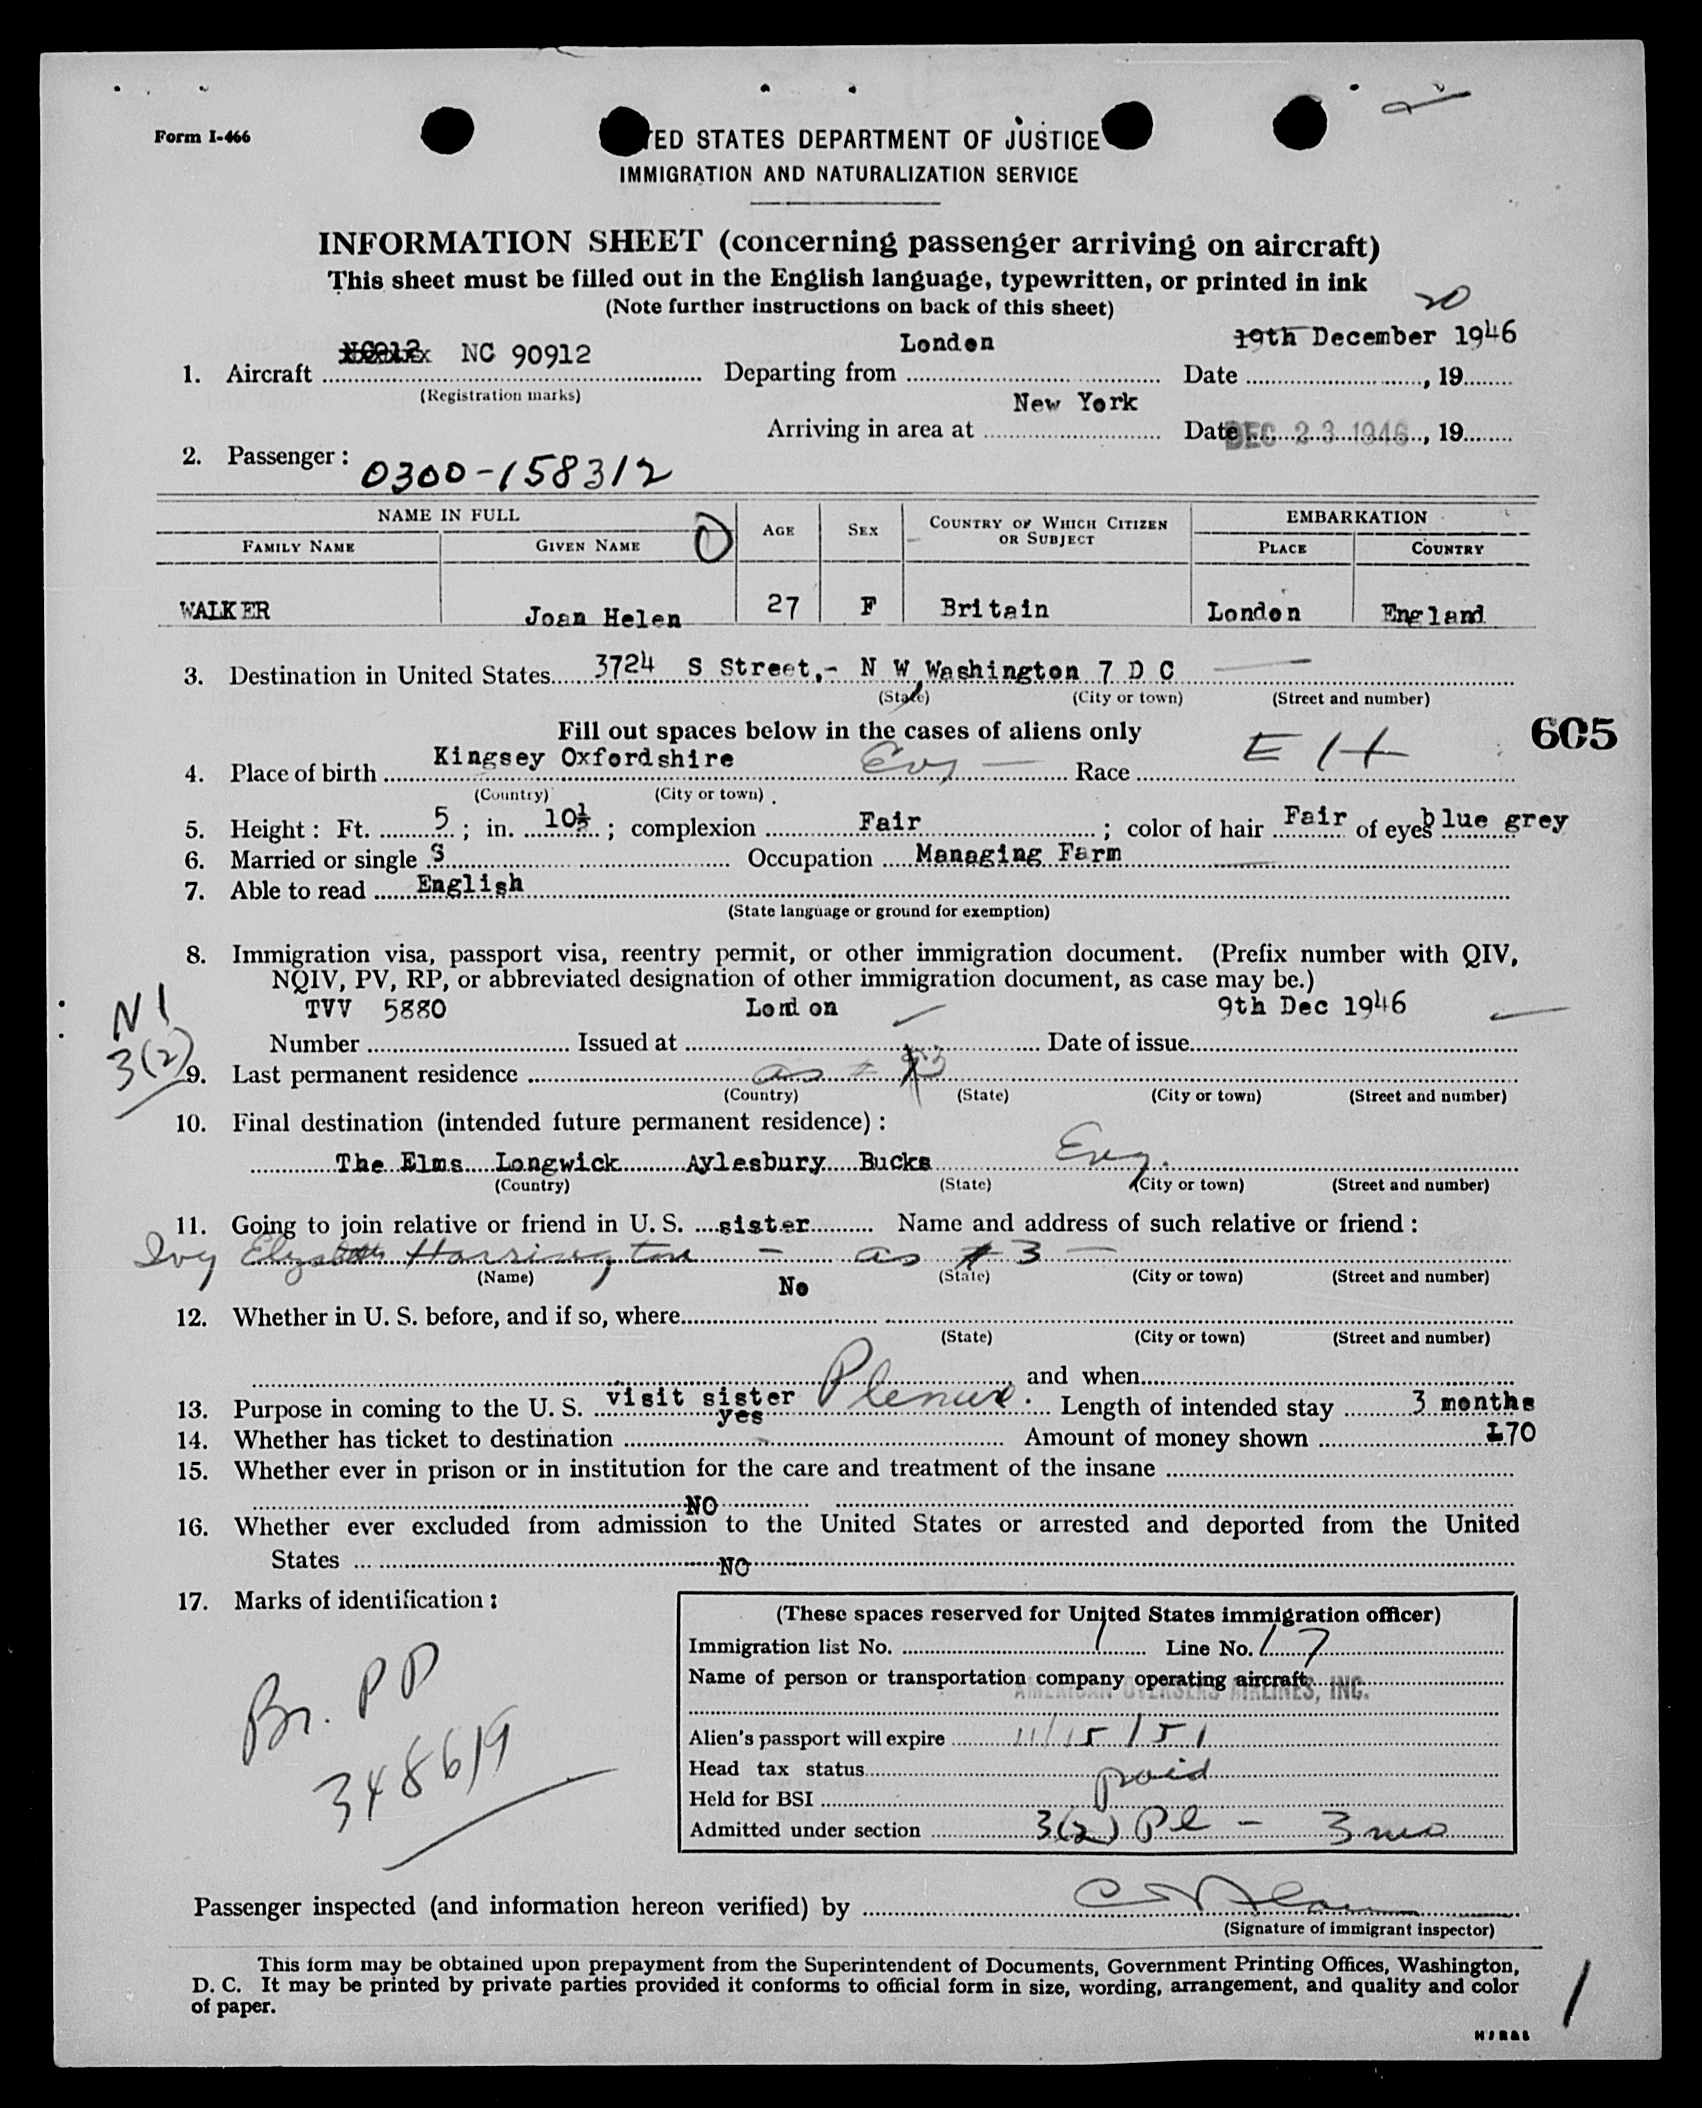 Form I-466
TED STATES DEPARTMENT OF JUSTICE
IMMIGRATION AND NATURALIZATION SERVICE
INFORMATION SHEET (concerning passenger arriving on aircraft)
This sheet must be filled out in the English language, typewritten, or printed in ink
(Note further instructions on back of this sheet)
20
1. Aircraft NC 90912 Departing from London Date 19th December 1946, 19
(Registration marks)
Arriving in area at New York Date DEC 23 1946, 19
2. Passenger: 0300-158312
NAME IN FULL AGE SEX COUNTRY OF WHICH CITIZEN OR SUBJECT EMBARKATION
FAMILY NAME GIVEN NAME PLACE COUNTRY
WALKER Joan Helen 27 F Britain London England
3. Destination in United States 3724 S Street,- N W Washington 7 D C
(State) (City or town) (Street and number)
Fill out spaces below in the cases of aliens only
605
4. Place of birth Kingsey Oxfordshire Eng - Race E H
(Country) (City or town)
5. Height: Ft. 5; in. 10½; complexion Fair; color of hair Fair of eyes blue grey
6. Married or single S Occupation Managing Farm
7. Able to read English
(State language or ground for exemption)
8. Immigration visa, passport visa, reentry permit, or other immigration document. (Prefix number with QIV,
NQIV, PV, RP, or abbreviated designation of other immigration document, as case may be.)
N I
3(2)
TVV 5880 London 9th Dec 1946
Number Issued at Date of issue
9. Last permanent residence as #
(Country) (State) (City or town) (Street and number)
10. Final destination (intended future permanent residence):
The Elms Longwick Aylesbury Bucks Eng.
(Country) (State) (City or town) (Street and number)
11. Going to join relative or friend in U. S. sister Name and address of such relative or friend:
Ivy Elizabeth Harrington - as # 3 -
(Name) (State) (City or town) (Street and number)
No
12. Whether in U. S. before, and if so, where
(State) (City or town) (Street and number)
and when
13. Purpose in coming to the U. S. visit sister Length of intended stay 3 months
14. Whether has ticket to destination yes Amount of money shown £70
15. Whether ever in prison or in institution for the care and treatment of the insane
NO
16. Whether ever excluded from admission to the United States or arrested and deported from the United
States NO
17. Marks of identification:
Br. PP
348619
(These spaces reserved for United States immigration officer)
Immigration list No. 1 Line No. 17
Name of person or transportation company operating aircraft
AMERICAN OVERSEAS AIRLINES, INC.
Alien's passport will expire 11/15/51
Head tax status paid
Held for BSI
Admitted under section 3(2) Pl - 3 mo
Passenger inspected (and information hereon verified) by
(Signature of immigrant inspector)
This form may be obtained upon prepayment from the Superintendent of Documents, Government Printing Offices, Washington,
D. C. It may be printed by private parties provided it conforms to official form in size, wording, arrangement, and quality and color
of paper.
1